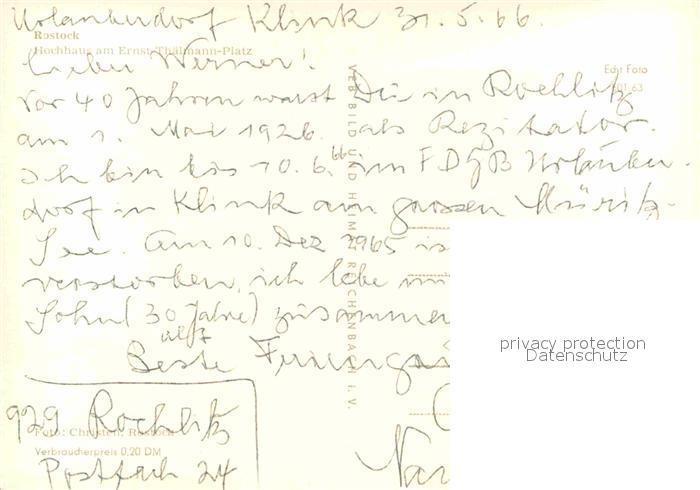 Urlauberdorf Klink 31.5.66.
Rostock
Hochhaus am Ernst-Thälmann-Platz
Lieber Werner!
Echt Foto
01 63
Vor 40 Jahren warst Du in Rochlitz
am 1. Mai 1926 als Rezitator.
Ich bin bis 10.6.66 im FDGB Urlauber-
dorf in Klink am grossen Müritz-
See. Am 10. Dez 1965 is
verstorben, ich lebe mi
Sohn (30 Jahre) zusammen
Beste
VEB BILD UND HEIMAT REICHENBACH I. V.
privacy protection
Datenschutz
929 Rochlitz
Foto: Christen, Rostock
Verbraucherpreis 0,20 DM
Postfach 24